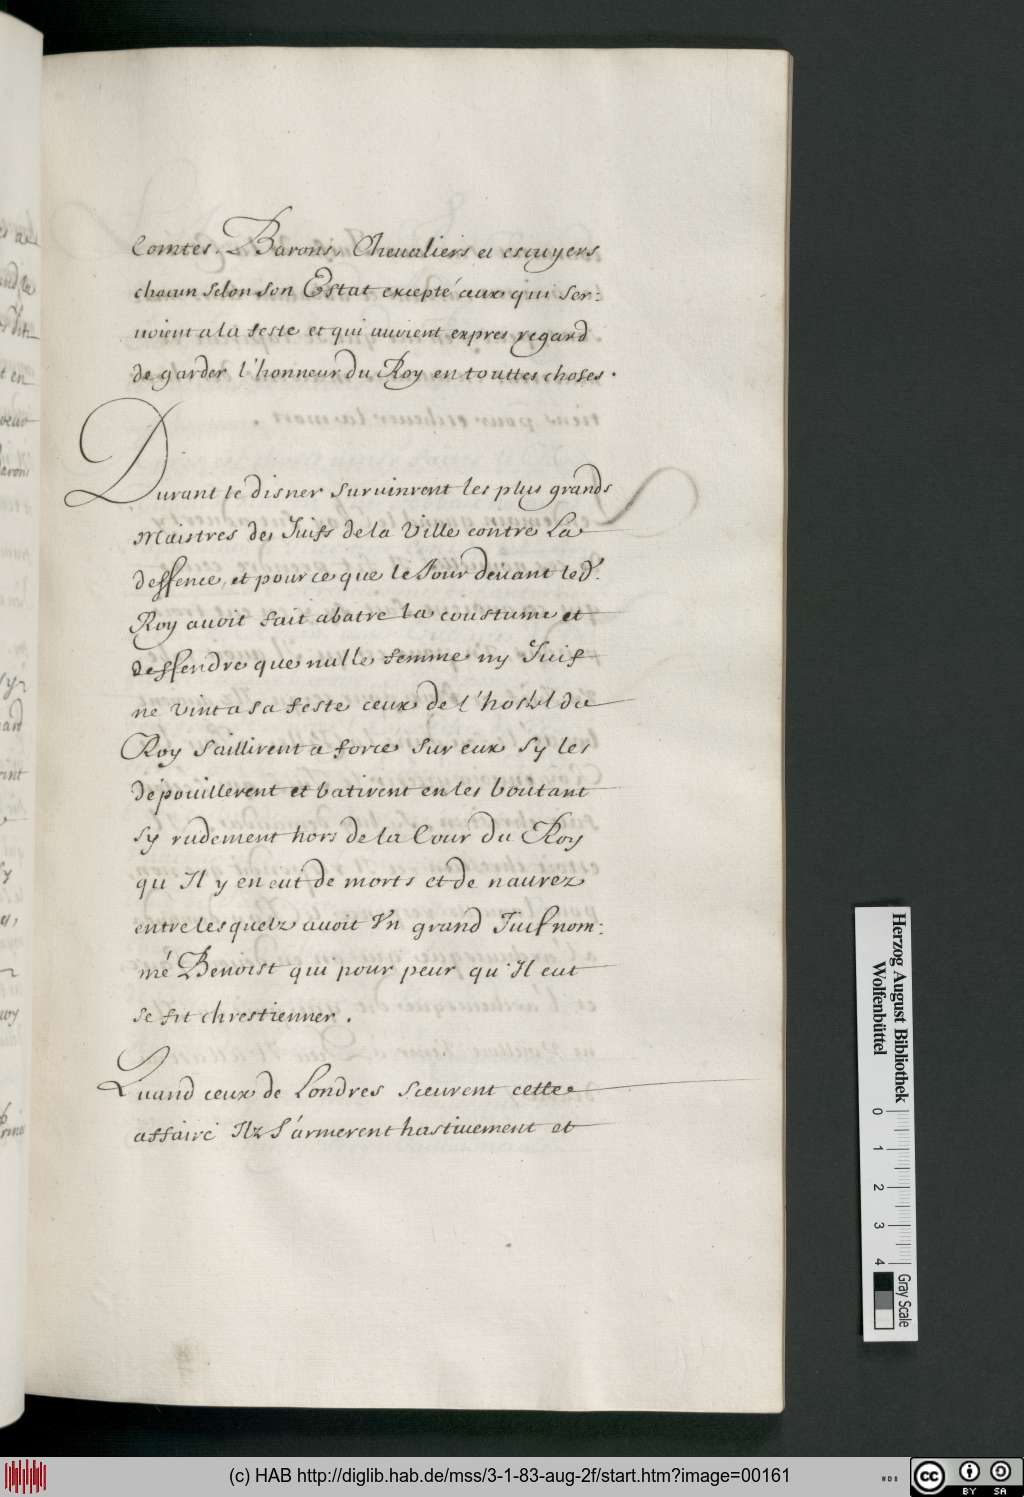 Comtes. Barons, Cheualiers et escuyers
chacun selon son Estat excepté ceux qui ser:
uoient a la feste et qui auoient expres regard
de garder l'honneur du Roy en touttes choses.
Durant le disner suruinrent les plus grands
Maistres des Juifs de la Ville contre La
deffence, et pource que le Jour deuant led.
Roy auoit fait abatre la coustume et
deffendre que nulle femme ny Juif
ne vint a sa feste ceux de l'hostel du
Roy saillirent a force sur eux sy les
dépouillerent et batirent en les boutant
sy rudement hors de la Cour du Roy
qu Il y en eut de morts et de naurez
entre lesquelz auoit Vn grand Juif nom:
mé Benoist qui pour peur qu'Il eut
se fit chrestienner.
Quand ceux de Londres sceurent cette
affaire Ilz s'armerent hastiuement et
Herzog August Bibliothek
Wolfenbüttel
0 1 2 3 4
Gray Scale
(c) HAB http://diglib.hab.de/mss/3-1-83-aug-2f/start.htm?image=00161
WDB
cc BY SA